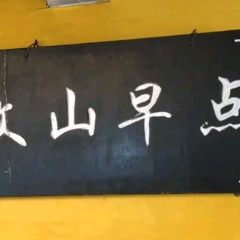 山早点